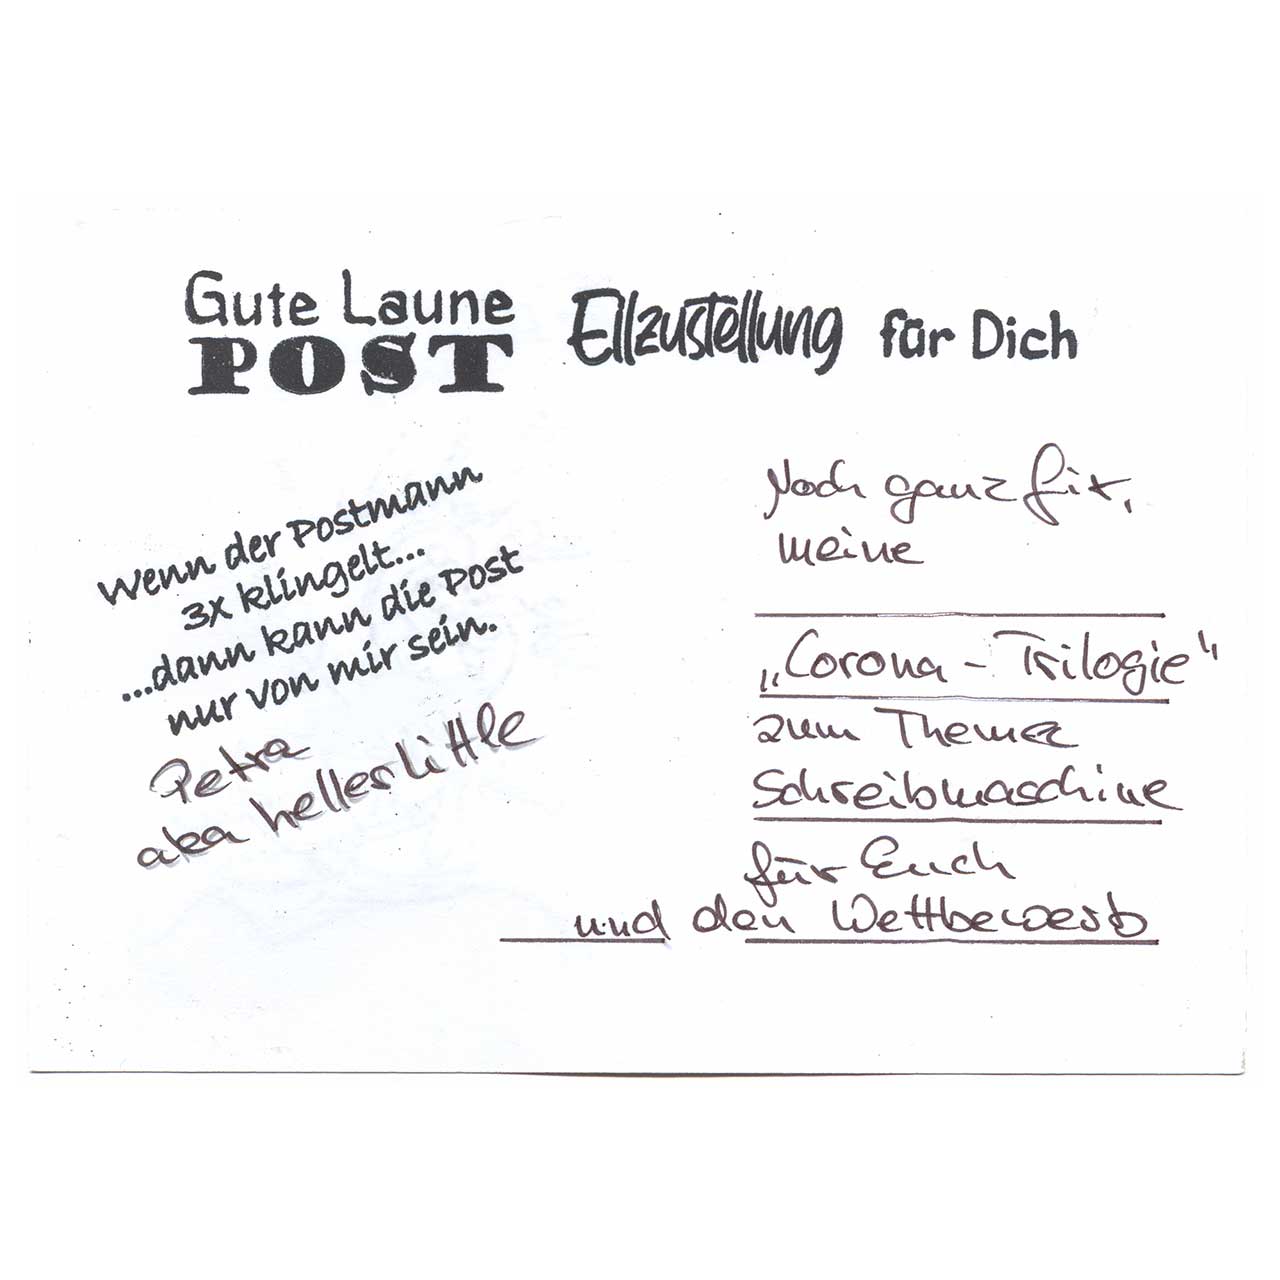 Gute Laune
POST
Eilzustellung für Dich
Wenn der Postmann
3x klingelt...
...dann kann die Post
nur von mir sein.
Petra
aka hellerlittle
Noch ganz fix,
meine
„Corona - Trilogie"
zum Thema
Schreibmaschine
für Euch
und den Wettbewerb